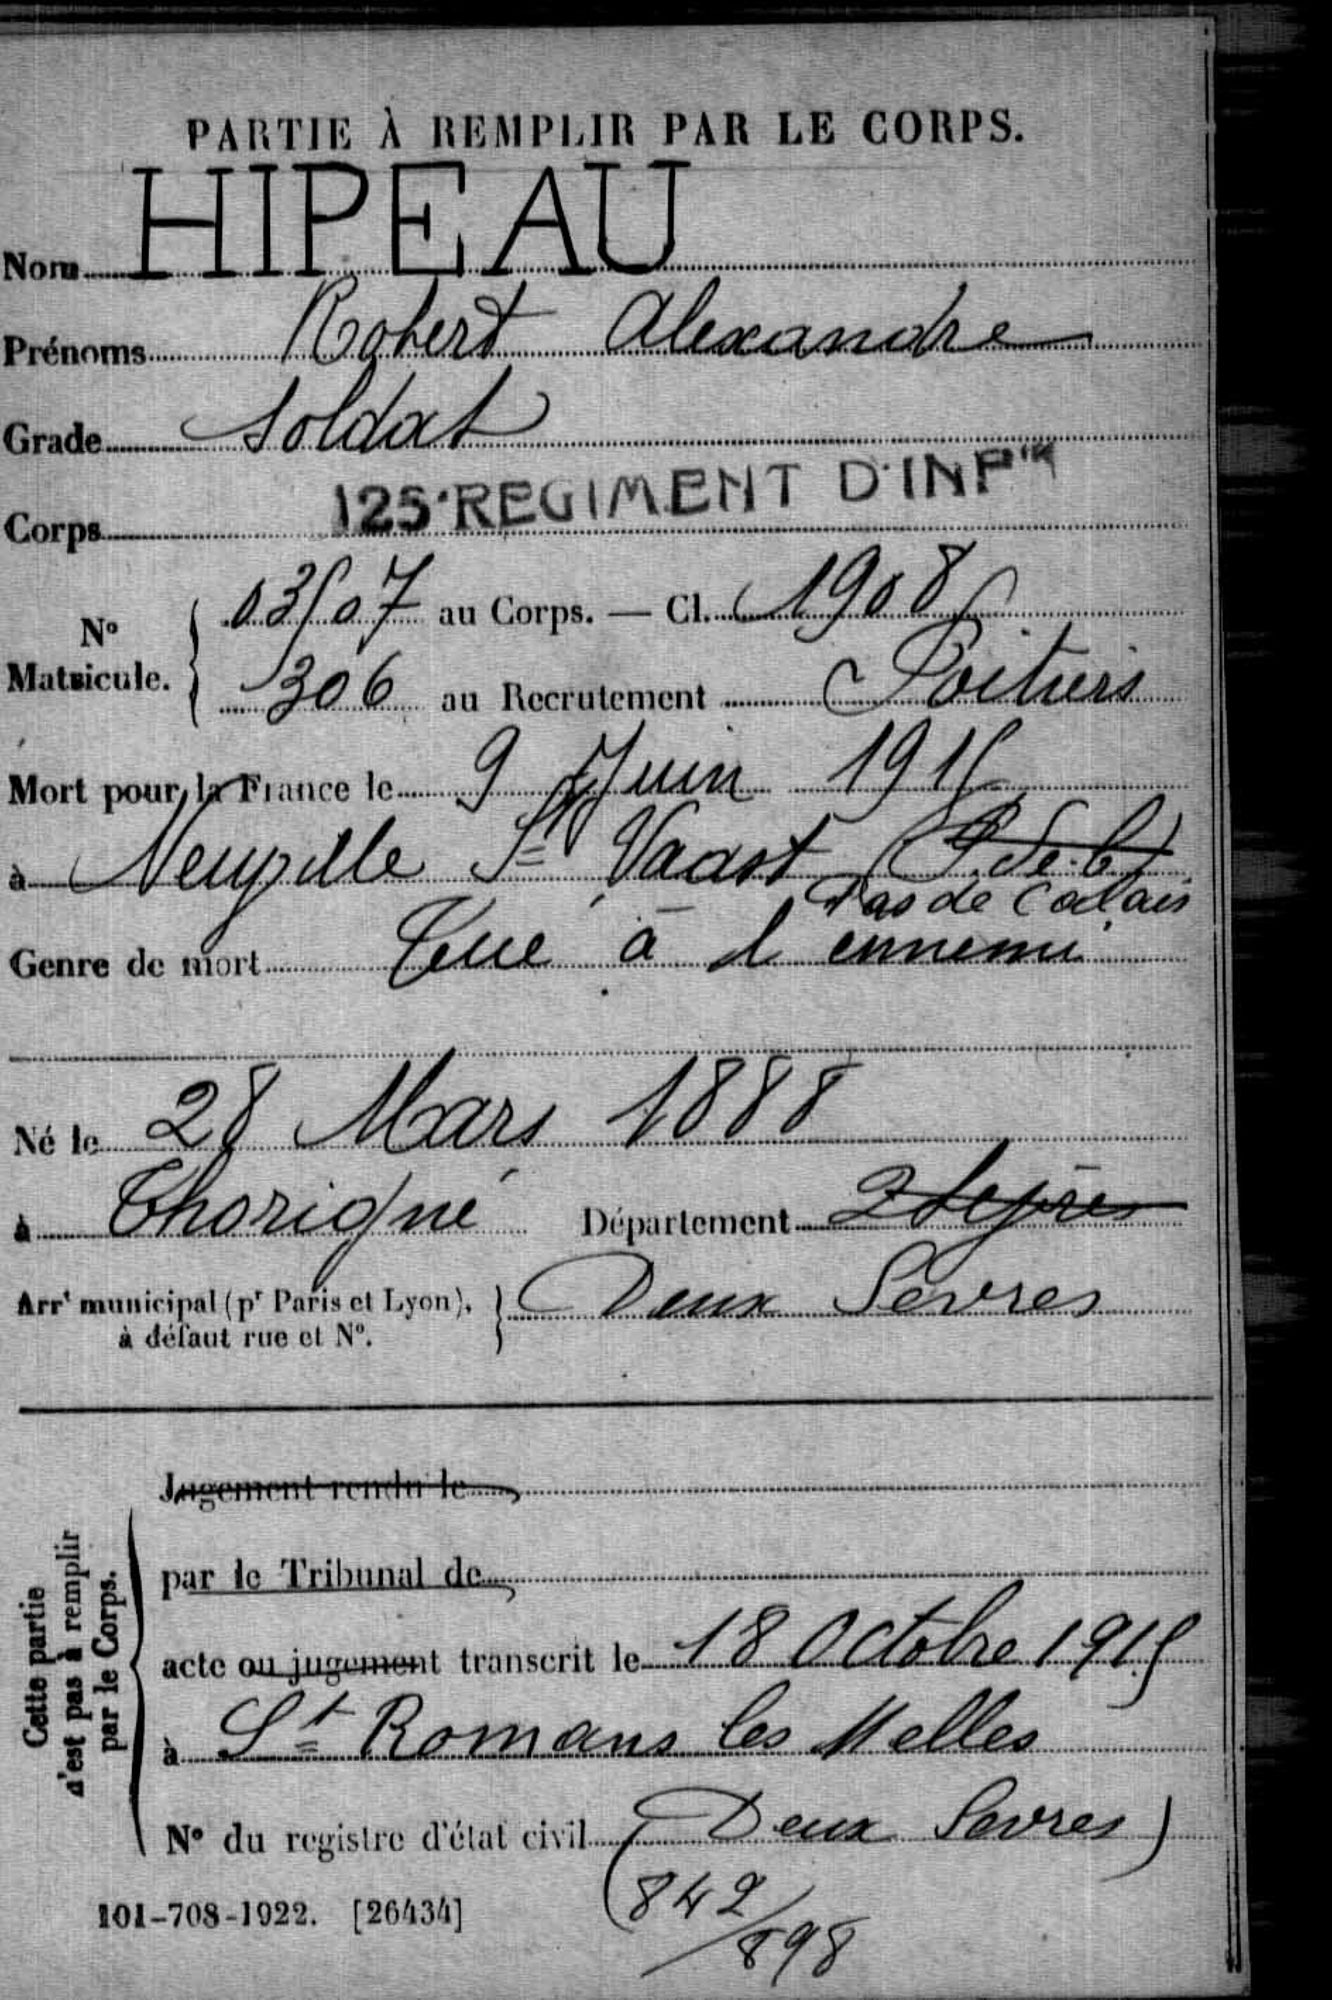 PARTIE À REMPLIR PAR LE CORPS.
Nom HIPEAU
Prénoms Robert Alexandre
Grade Soldat
Corps 125e REGIMENT D'INFie
No Matricule. { 03507 au Corps. — Cl. 1908
306 au Recrutement Poitiers
Mort pour la France le 9 Juin 1915
à Neuville St Vaast (P. de C)
Pas de Calais
Genre de mort Tué à l'ennemi
Né le 28 Mars 1888
à Thorigné Département 2 Sèvres
Arrt municipal (pr Paris et Lyon), } Deux Sevres
à défaut rue et No.
Cette partie
n'est pas à remplir
par le Corps.
Jugement rendu le
par le Tribunal de
acte ou jugement transcrit le 18 Octobre 1915
à St Romans les Melles
No du registre d'état civil (Deux Sevres)
842/898
101-708-1922. [26434]